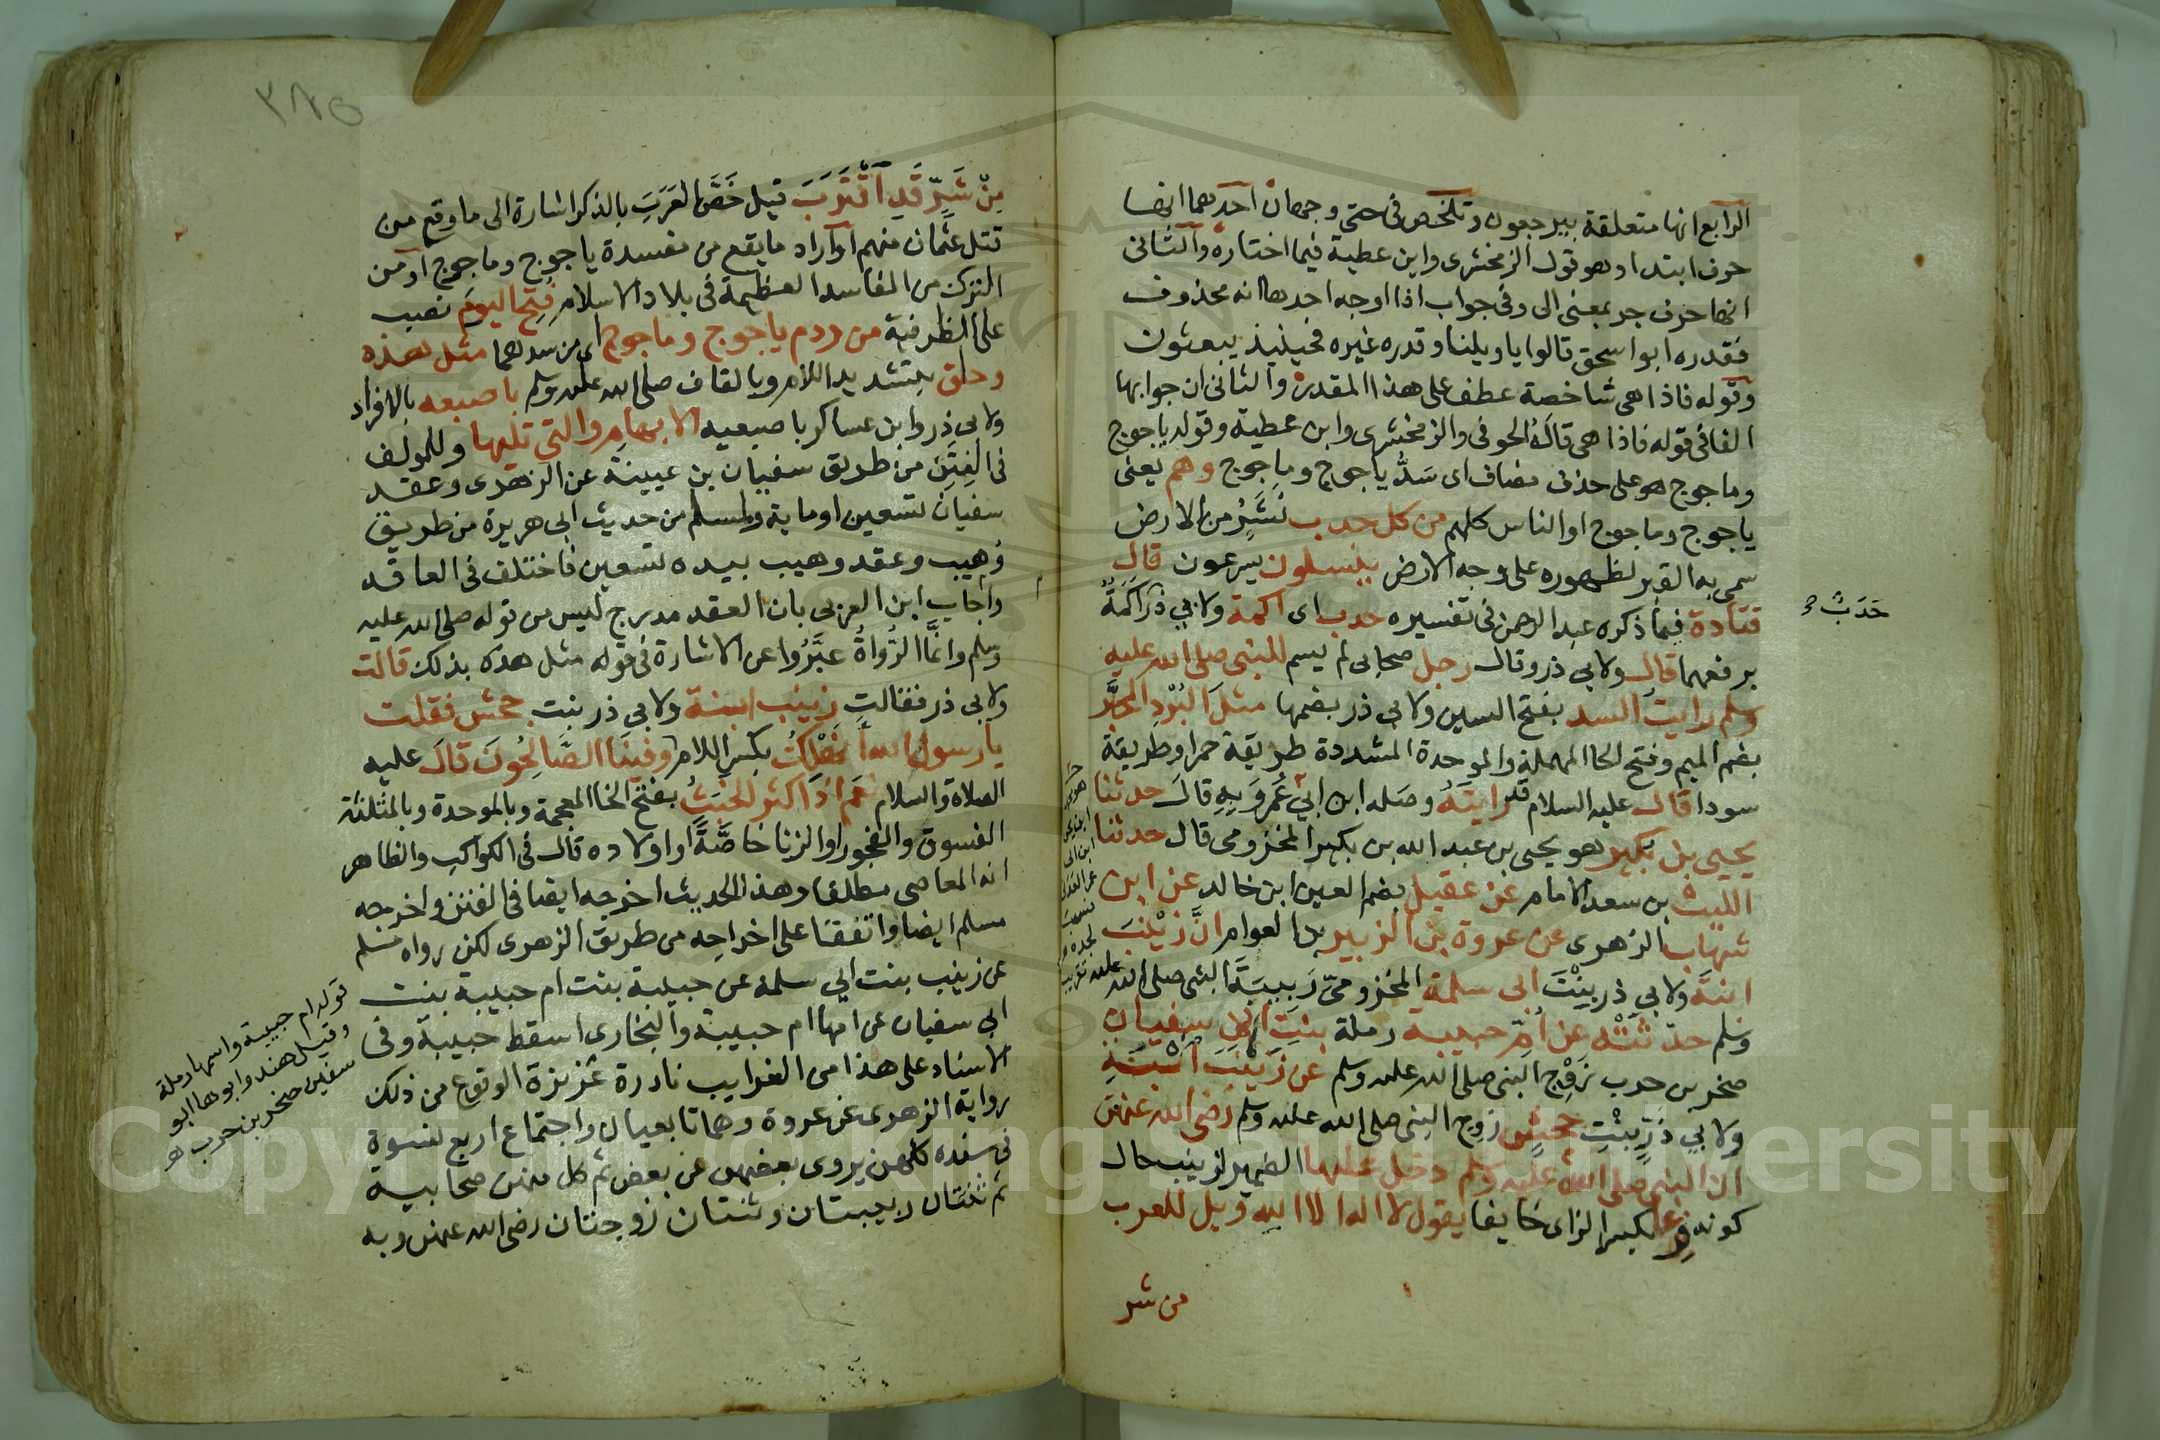 الرابع انها متعلقة بيرجعون وتلخص فى حتى وجهان احدهما انها
حرف ابتدا وهو قول الزمخشرى وابن عطية فيما اختاره والثانى
انها حرف جر بمعنى الى وفى جواب اذا اوجه احدها انه محذوف
فقدره ابو اسحق قالوا يا ويلنا وقدره غيره فحينيذ يبعثون
وقوله فاذا هى شاخصة عطف على هذا المقدر والثانى ان جوابها
الفا فى قوله فاذا هى قاله الحوفى والزمخشرى وابن عطية وقوله ياجوج
وماجوج هو على حذف مضاف اى سد ياجوج وماجوج وهم يعنى
ياجوج وماجوج او الناس كلهم من كل حدب نشز من الارض
سمى به القبر لظهوره على وجه الارض ينسلون يسرعون قال
قتادة فيما ذكره عبد الرحمن فى تفسيره حدب اى اكمة ولابي ذر اكمة
حَدَبٌ
برفعهما قال ولابي ذر وقال رجل صحابى لم يسم للنبى صلى الله عليه
وسلم رايت السد بفتح السين ولابي ذر بضمها مثل البُرْدِ المحبَّر
بضم الميم وفتح الحا المهملة والموحدة المشددة طريقة حمرا وطريقة
سودا قال عليه السلام قد رايتَهُ وصله ابن ابي عُمَر وَبِهِ قال حدثنا
يحيى بن بكير هو يحيى بن عبد الله بن بكير المخزومى قال حدثنا
الليث بن سعد الامام عن عقيل بضم العين ابن خالد عن ابن
شهاب الزهرى عن عروة بن الزبير بن العوام انَّ زَيْنَبَ
ابنةَ ولابي ذر بِنْتَ ابى سلمة المخزومىّ رَبِيبَةَ النبى صلى الله عليه
وسلم حدثَتْه عن أمِّ حبيبة رملة بِنْتِ ابى سفيان
صخر بن حرب زَوْجِ النبى صلى الله عليه وسلم عن زَيْنَبَ ابْنَةِ
ولابي ذَرٍّ بِنْتِ جحشٍ زوج النبى صلى الله عليه وسلم رضى الله عنهن
ان النبى صلى الله عليه وسلم دخل عليها الضمير لزينب حال
كونه فزِعا بكسر الزاى خايفا يقول لا اله الا الله ويل للعرب
من شر
٣٨٥
مِنْ شَرٍّ قَدِ اقْتَرَبَ قيل خَصَّ العَرَبَ بالذكر اشارة الى ما وقع من
قتل عثمان منهم او آراد ما يقع من مفسدة ياجوج وماجوج او من
الترك من المفاسد العظيمة فى بلاد الاسلام فُتِحَ اليومَ نصب
على الظرفية من ردم ياجوج وماجوج اى من سدهما مثل هذه
وحلق بتشديد اللام وبالقاف صلى الله عليه وسلم باصبعه بالافراد
ولابي ذر وابن عساكر باصبعيه الابهام والتى تليها وللمولف
فى الفِتَن من طريق سفيان بن عيينة عن الزهرى وعقد
سفيان تسعين او ماية ولمسلم من حديث ابى هريرة من طريق
وُهيب وعقد وهيب بيده تسعين فاختلف فى العاقد
واجاب ابن العربى بان العقد مدرج ليس من قوله صلى الله عليه
وسلم وانَّما الرُّواةُ عبَّرُوا عن الاشارة فى قوله مثل هذه بذلك قالت
ولابى ذر فقالت زينب ابنة ولابي ذر بنت جحش فقلت
يا رسول الله أنَهْلِكُ بكسر اللام وفينا الصَّالِحُونَ قالَ عليه
الصلاة والسلام نعم اذا كثر الخبَثُ بفتح الخا المعجمة وبالموحدة وبالمثلثة
الفسوق والفجور او الزنا خاصَّةً او اولاده قال فى الكواكب والظاهر
انه المعاصى مطلقا وهذا الحديث اخرجه ايضا فى الفتن واخرجه
مسلم ايضا واتفقا على اخراجه من طريق الزهرى لكن رواه مسلم
عن زينب بنت ابي سلمة عن حبيبة بنت ام حبيبة بنت
ابي سفيان عن امها ام حبيبة والبخارى اسقط حبيبة وفى
الاسناد على هذا من الغرايب نادرة عزيزة الوقوع من ذلك
رواية الزهرى عن عروة وهما تابعيان واجتماع اربع نسوة
فى سنده كلهن يروى بعضهن عن بعض ثم كل منهن صحابية
ثم ثنتان ربيبتان وثنتان زوجتان رضى الله عنهن وبه
قوله ام حبيبة واسمها رملة
وقيل هند وابوها ابو
سفين صخر بن حرب هو
Copyright © King Saud University